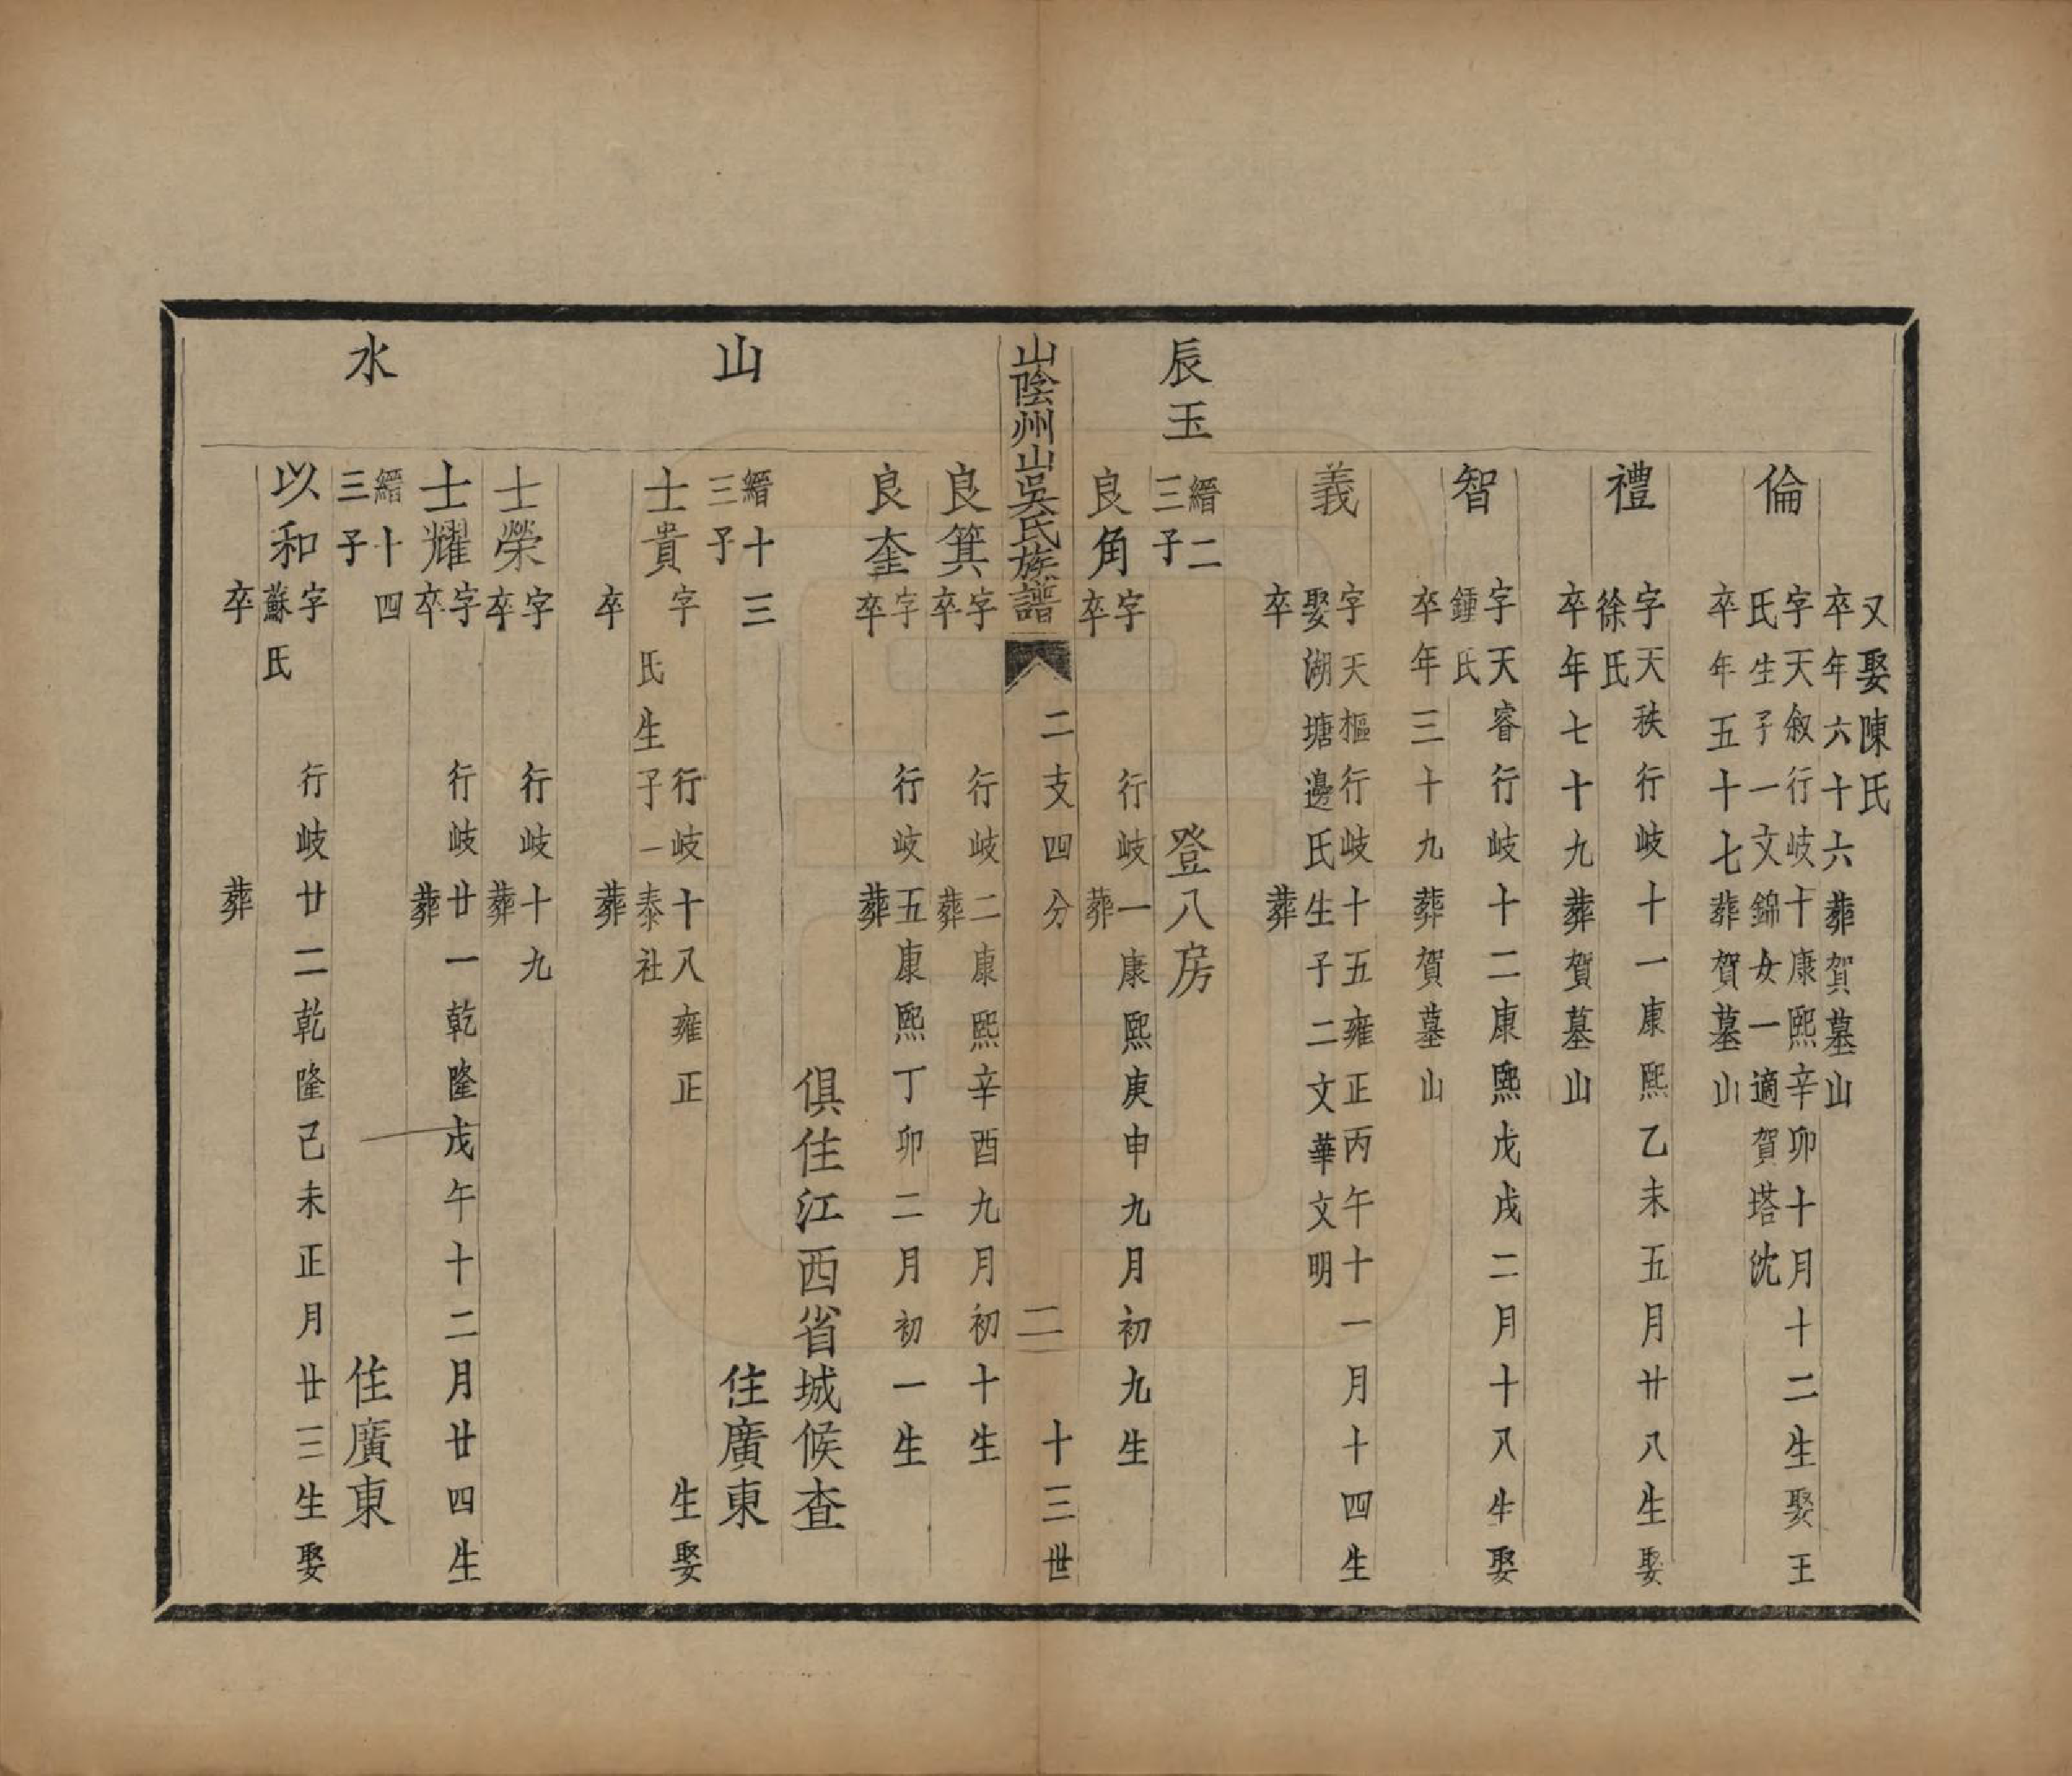 又娶陳氏
卒年六十六葬賀墓山
倫
字天敘行岐十康熙辛卯十月十二生娶王
氏生子一文錦女一適賀塔沈
卒年五十七葬賀墓山
禮
字天秩行岐十一康熙乙未五月廿八生娶
徐氏
卒年七十九葬賀墓山
智
字天睿行岐十二康熙戊戌二月十八生娶
鍾氏
卒年三十九葬賀墓山
義
字天樞行岐十五雍正丙午十一月十四生
娶湖塘邊氏生子二文華文明
卒　葬
辰玉
縉二
三子
登八房
良角
字　行岐一康熙庚申九月初九生
卒　葬
山陰州山吳氏族譜　二支四分　二　十三世
良箕
字　行岐二康熙辛酉九月初十生
卒　葬
良奎
字　行岐五康熙丁卯二月初一生
卒　葬
俱住江西省城候查
山
縉十三
三子
住廣東
士貴
字　行岐十八雍正　生娶
氏生子一泰社
卒　葬
士榮
字　行岐十九
卒　葬
士耀
字　行岐廿一乾隆戊午十二月廿四生
卒　葬
水
縉十四
三子
住廣東
以和
字　行岐廿二乾隆己未正月廿三生娶
蘇氏
卒　葬